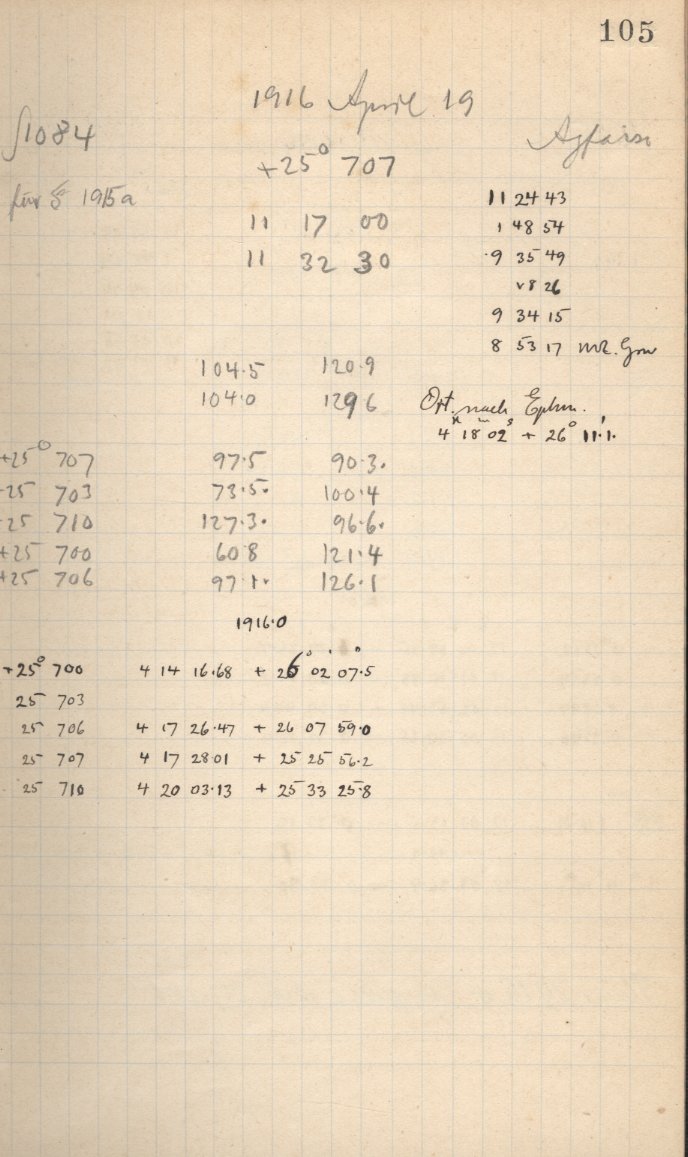 105
1916 April 19
1084
+25° 707
für 1915a
11 17 00
11 32 30
11 24 43
1 48 54
9 35 49
9 34 15
8 53 17
104.5 120.9
104.0 129.6
Ort. nach Ephm.
4h 18m 02s + 26° 11.1'
+25° 707 97.5 90.3.
25 703 73.5. 100.4
25 710 127.3. 96.6.
+25 700 60.8 121.4
+25 706 97.1. 126.1
1916.0
+25° 700 4 14 16.68 + 26° 02' 07".5
25 703
25 706 4 17 26.47 + 26 07 59.0
25 707 4 17 28.01 + 25 25 56.2
25 710 4 20 03.13 + 25 33 25.8